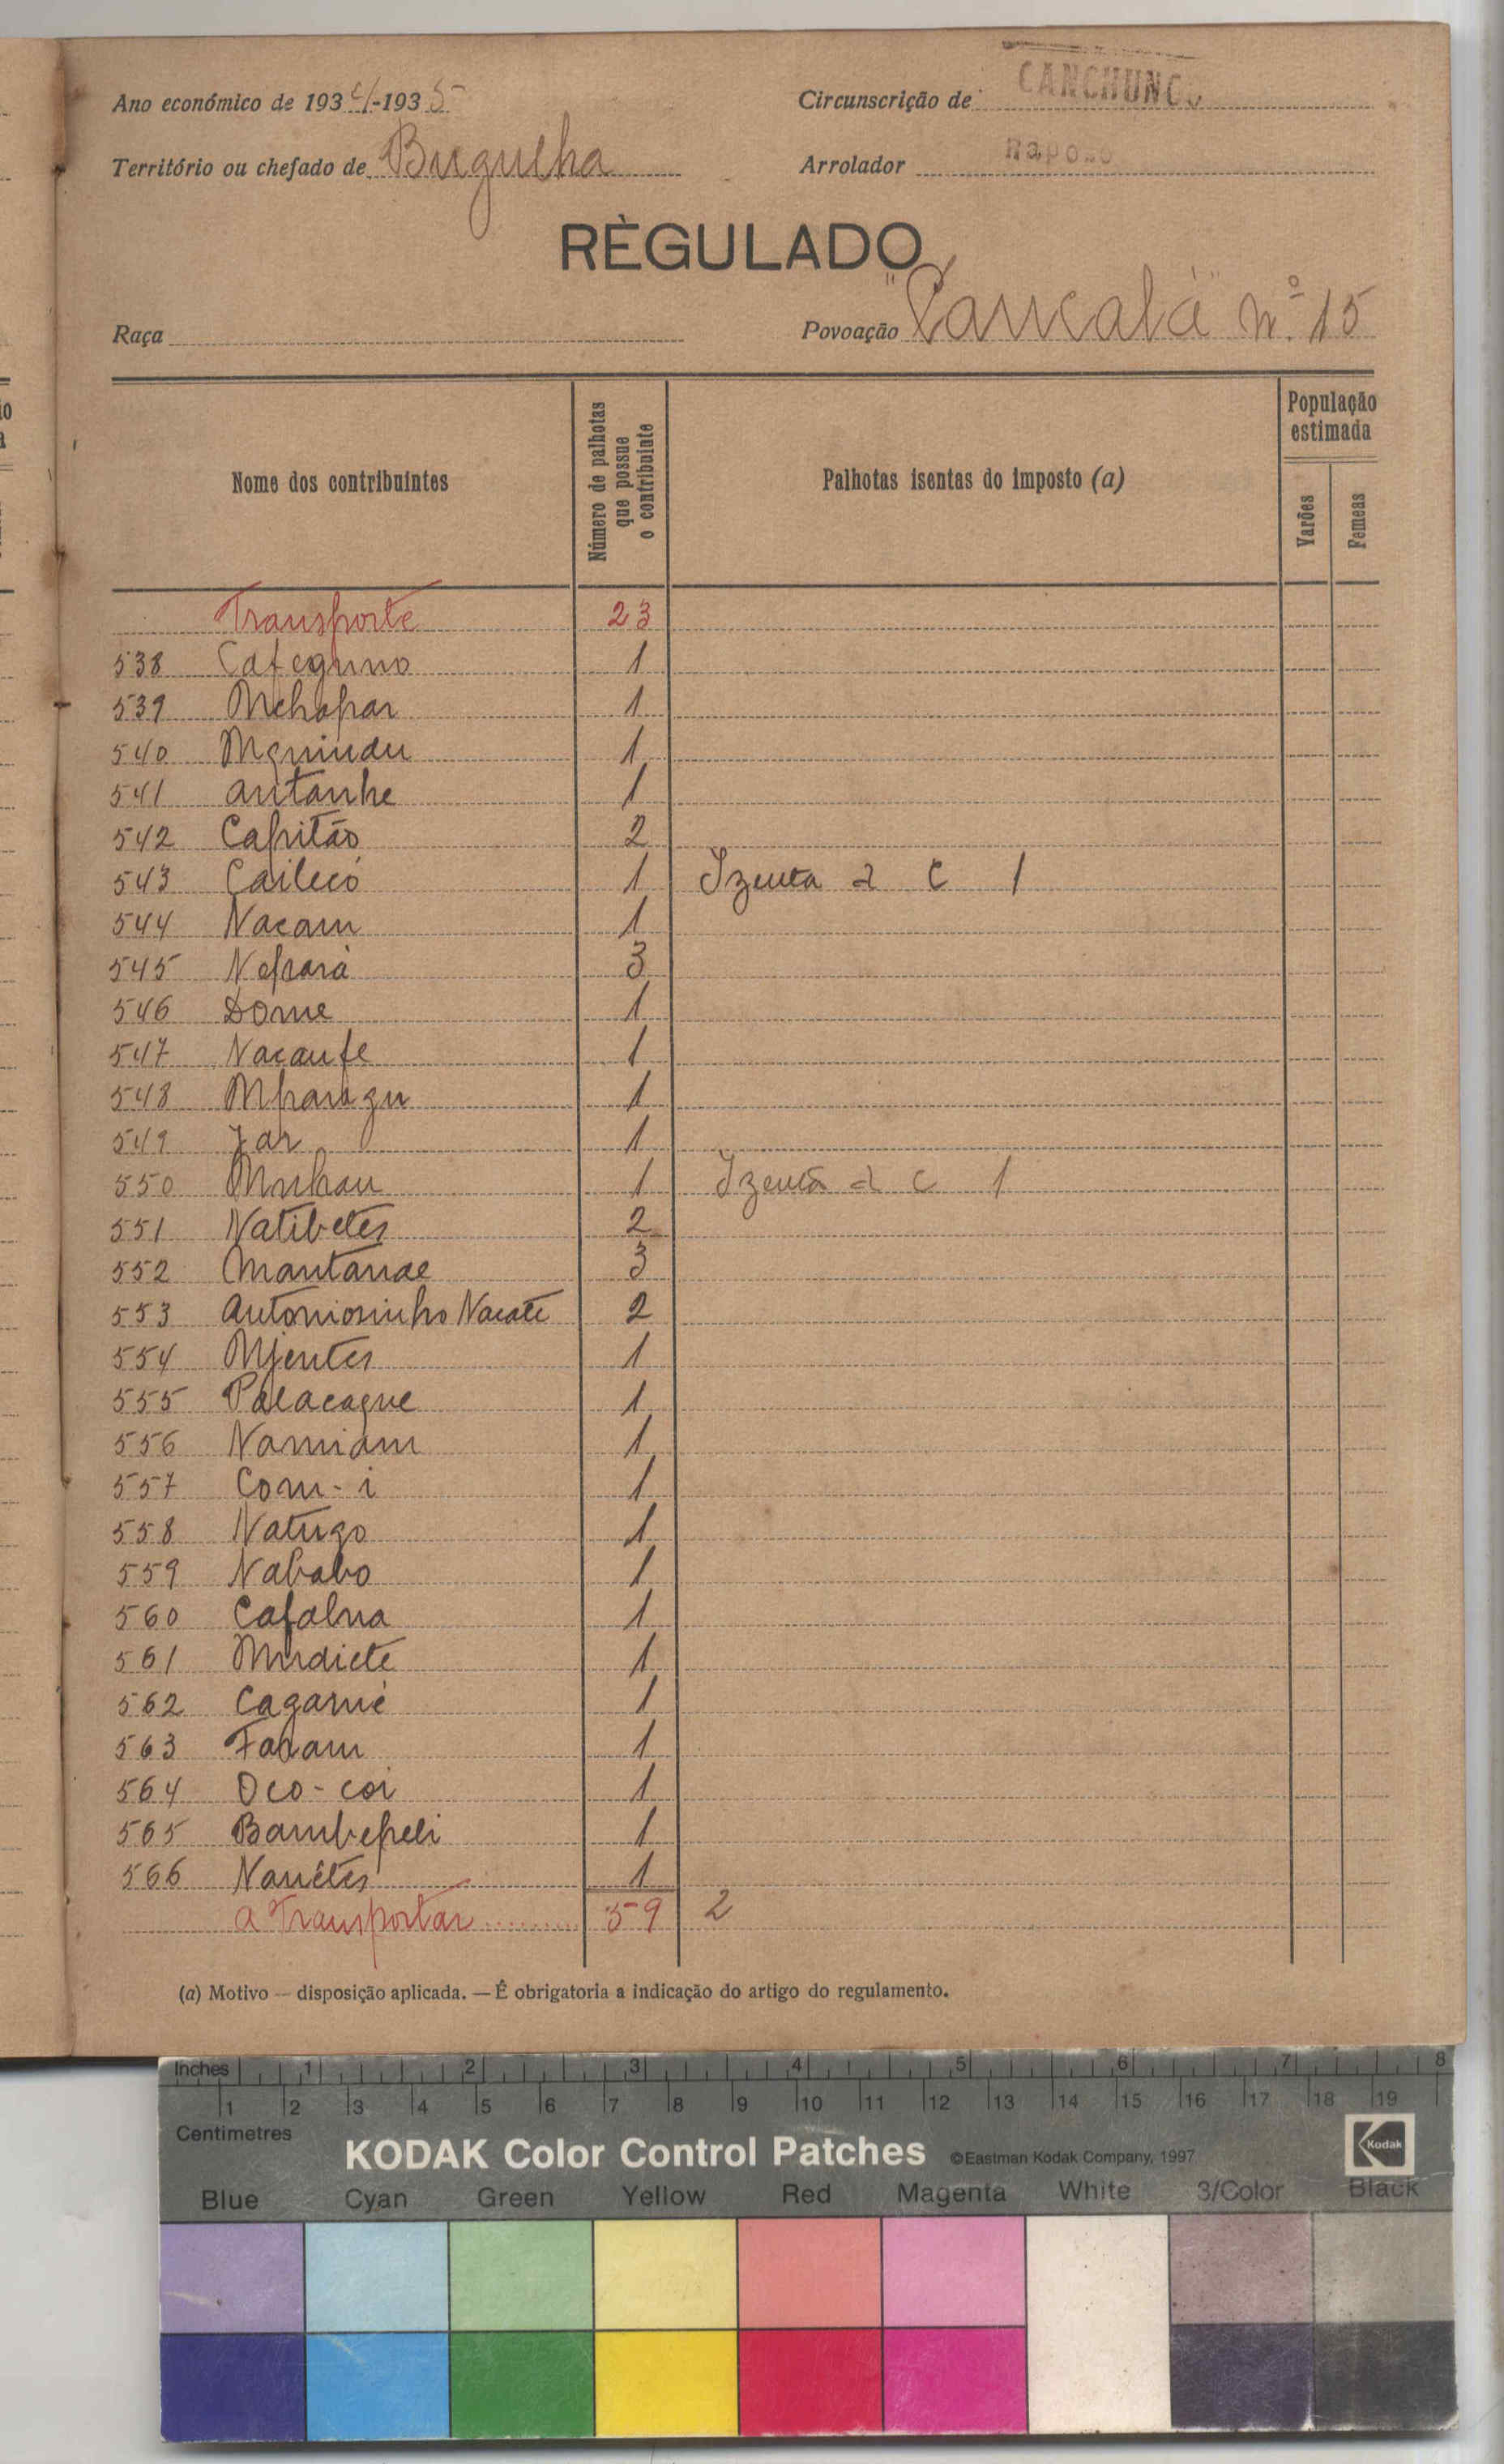 Ano económico de 1934-1935
Circunscrição de CANCHUNGO
Território ou chefado de Bugulha
Arrolador Raposo
RÈGULADO
Raça
Povoação nº 15
Nome dos contribuintes
Número de palhotas que possue o contribuinte
Palhotas isentas do imposto (a)
População estimada
Varões
Femeas
Transporte 23
538 1
539 Mchapar 1
540 1
541 antanhe 1
542 Capitão 2
543 Cailecó 1 Izenta d C 1
544 Nacam 1
545 Nepará 3
546 Dome 1
547 Nacanfe 1
548 1
549 Jar 1
550 1 Izenta d C 1
551 Natibetes 2
552 Mantanae 3
553 Antoniosinho Nacate 2
554 Mjentes 1
555 Palacague 1
556 Namiam 1
557 Com-i 1
558 Natugo 1
559 Nababo 1
560 Cafalna 1
561 1
562 Cagamé 1
563 1
564 Oco-coi 1
565 Bambepeli 1
566 Nanêtes 1
a Transportar 59 2
(a) Motivo — disposição aplicada. — É obrigatoria a indicação do artigo do regulamento.
Inches 1 2 3 4 5 6 7 8
1 2 3 4 5 6 7 8 9 10 11 12 13 14 15 16 17 18 19
Centimetres
KODAK Color Control Patches ©Eastman Kodak Company, 1997 Kodak
Blue Cyan Green Yellow Red Magenta White 3/Color Black